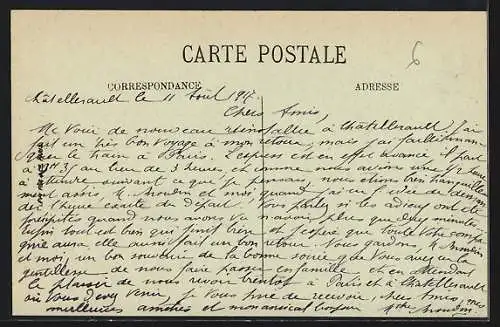 6
CARTE POSTALE
CORRESPONDANCE
ADRESSE
Châtellerault le 11 Août 1917.
Chers Amis,
Me voici de nouveau réinstallée à Châtellerault. J'ai
fait un très bon voyage à mon retour, mais j'ai failli manquer
le train à Paris. L'express est en effet avancé, il part
au lieu de 9 heures, et comme nous avions une 1/2 heure
à attendre suivant ce que je pensais, nous étions bien tranquillement
assis M. Mondon et moi quand j'ai eu l'idée de demander
l'heure exacte du départ. Vous parlez si les adieux ont été
précipités quand nous avons vu n'avoir plus que deux minutes.
Enfin tout est bien qui finit bien et j'espère que toute votre compagnie
aura elle aussi fait un bon retour. Nous gardons, M. Mondon
et moi, un bon souvenir de la bonne soirée que vous avez eu la
gentillesse de nous faire passer en famille et en attendant
le plaisir de nous revoir bientôt à Paris et à Châtellerault
où vous devez venir, je vous prie de recevoir, chers Amis, nos
meilleures amitiés et mon amical bonjour
Mondon